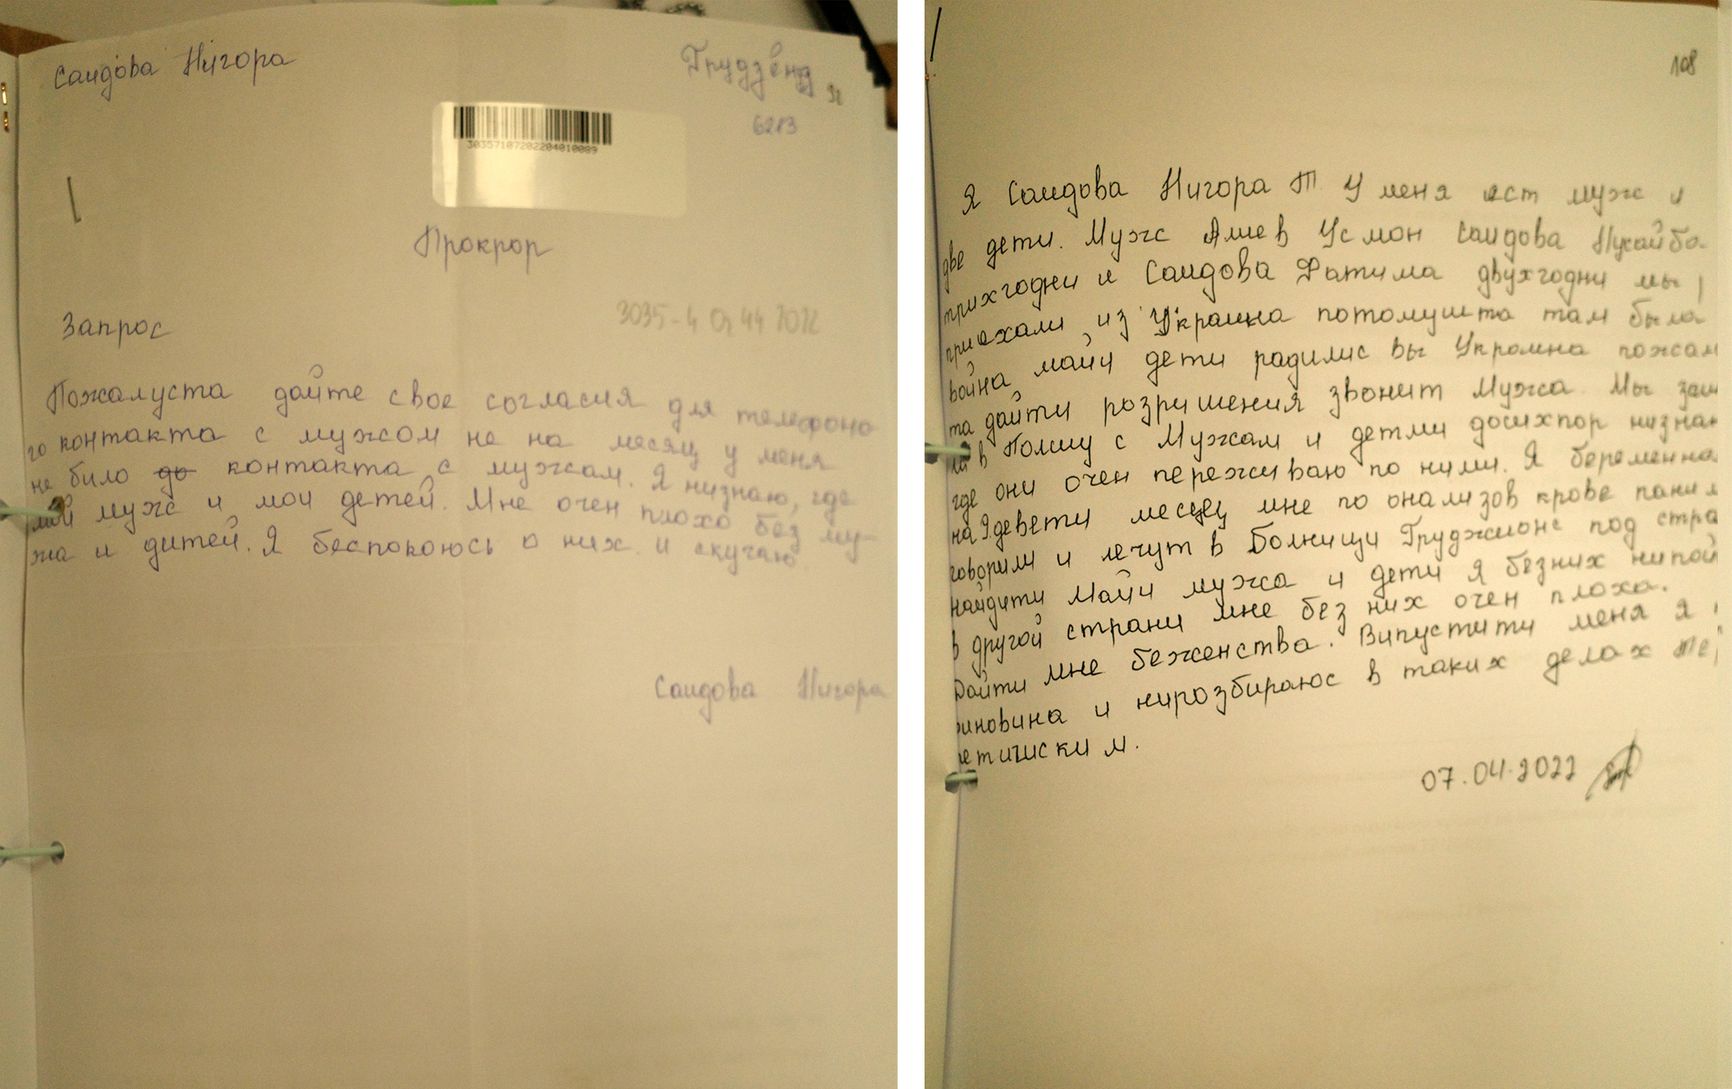 Саидова Нигора
Грудзёндз
6213
30357107202204010089
Прокрор
3035-4
Запрос
Пожалуста дайте свое согласия для телефоно
го контакта с мужсом не на месяц у меня
не било до контакта с мужсам. Я низнаю, где
мой мужс и мои детей. Мне очен плохо без му-
жа и дитей. Я беспокоюсь о них и скучаю.
Саидова Нигора
108
Я Саидова Нигора Т У меня ест мужс и
две дети. Мужс Алиев Усмон Саидова Мухайбо
трихгодни и Саидова Фатима двухгодни мы
приехали из Украина потомушта там была
война майи дети радилис вы Украина пожсал
та дайти розришения звонит Мужса. Мы заш
ли в Полшу с Мужсам и детми досихпор низнаю
где они очен пережсиваю по ними. Я беременна
на 9 девети месяц мне по онализов крове
говорили и лечут в Болници Груджионс под стра
найдити Майи мужса и дети я безних
в другой страни мне без них очен плоха.
Дайти мне беженства. Випустити меня я
виновина и нирозбираюс в таких делах
етишски м.
07.04.2022